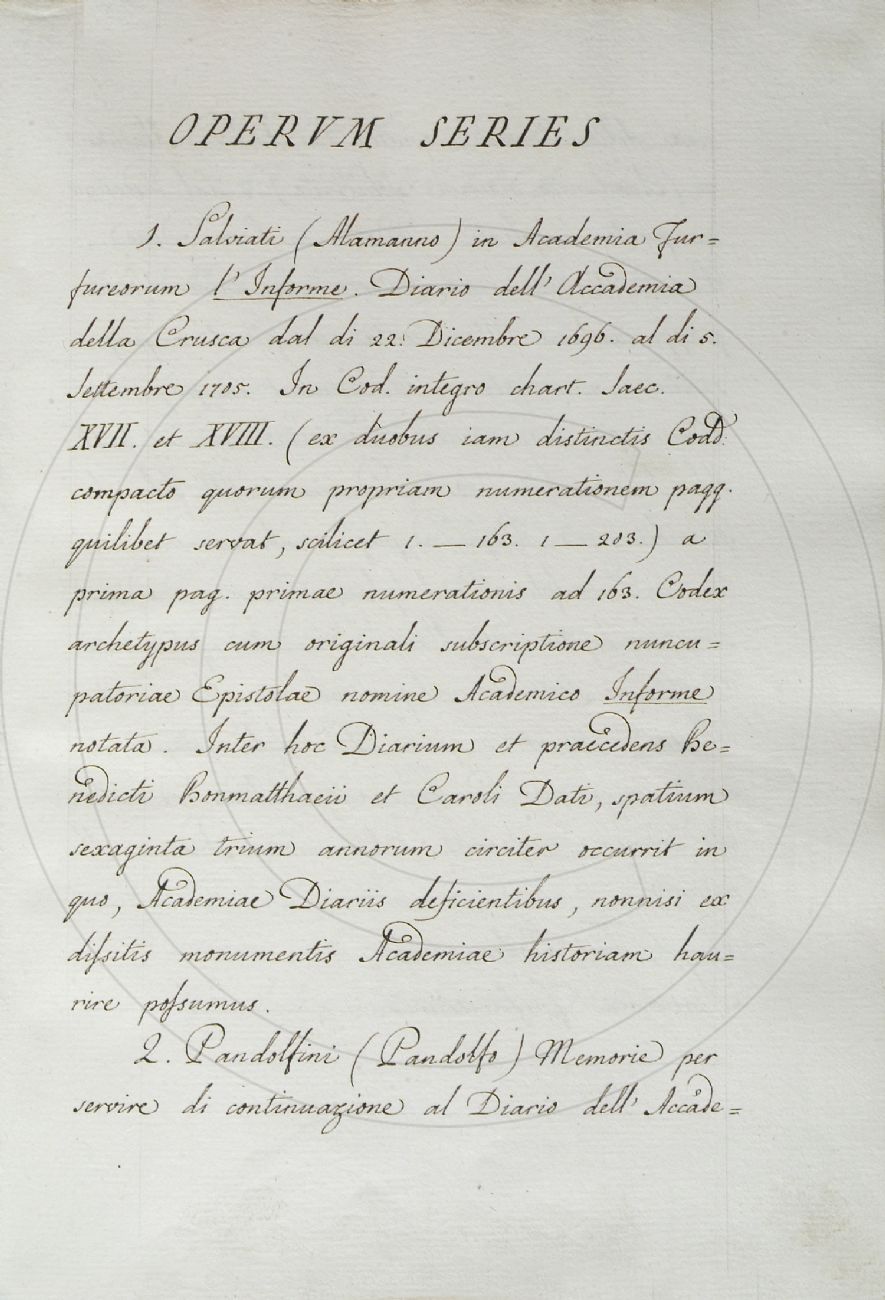 OPERVM SERIES
1. Salviati (Alamanno) in Academia Fur=
fureorum l'Informe. Diario dell'Accademia
della Crusca dal di 22. Dicembre 1696. al di 5.
Settembre 1705. In Cod. integro chart. Saec.
XVII. et XVIII. (ex duobus iam distinctis Codd.
compacto quorum propriam numerationem pagg.
quilibet servat, scilicet 1. — 163. 1 — 203.) a
prima pag. primae numerationis ad 163. Codex
archetypus cum originali subscriptione nuncu=
patoriae Epistolae nomine Academico Informe
notata. Inter hoc Diarium et praecedens Be=
nedicti Bonmatthaeii et Caroli Dati, spatium
sexaginta trium annorum circiter occurrit in
quo, Academiae Diariis deficientibus, nonnisi ex
dissitis monumentis Academiae historiam hau=
rire possumus.
2. Pandolfini (Pandolfo) Memorie per
servire di continuazione al Diario dell'Accade=